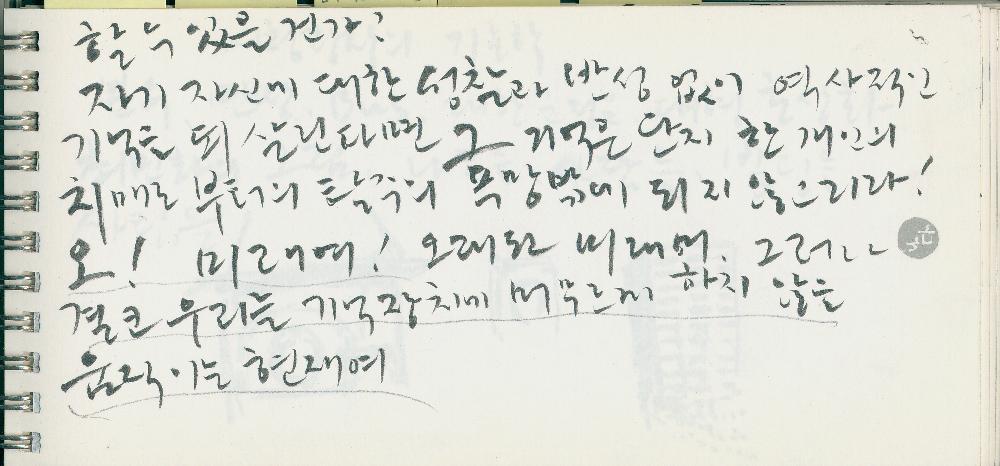 할 수 있을 건가?
자기 자신에 대한 성찰과 반성 없이 역사적인
기억을 되살린다면 그 기억은 단지 한 개인의
치매로 부터의 탈주의 욕망밖에 되지 않으리라!
오! 미래여! 오래된 미래여. 그러나
결코 우리를 기억장치에 머무르게 하지 않을
움직이는 현재여